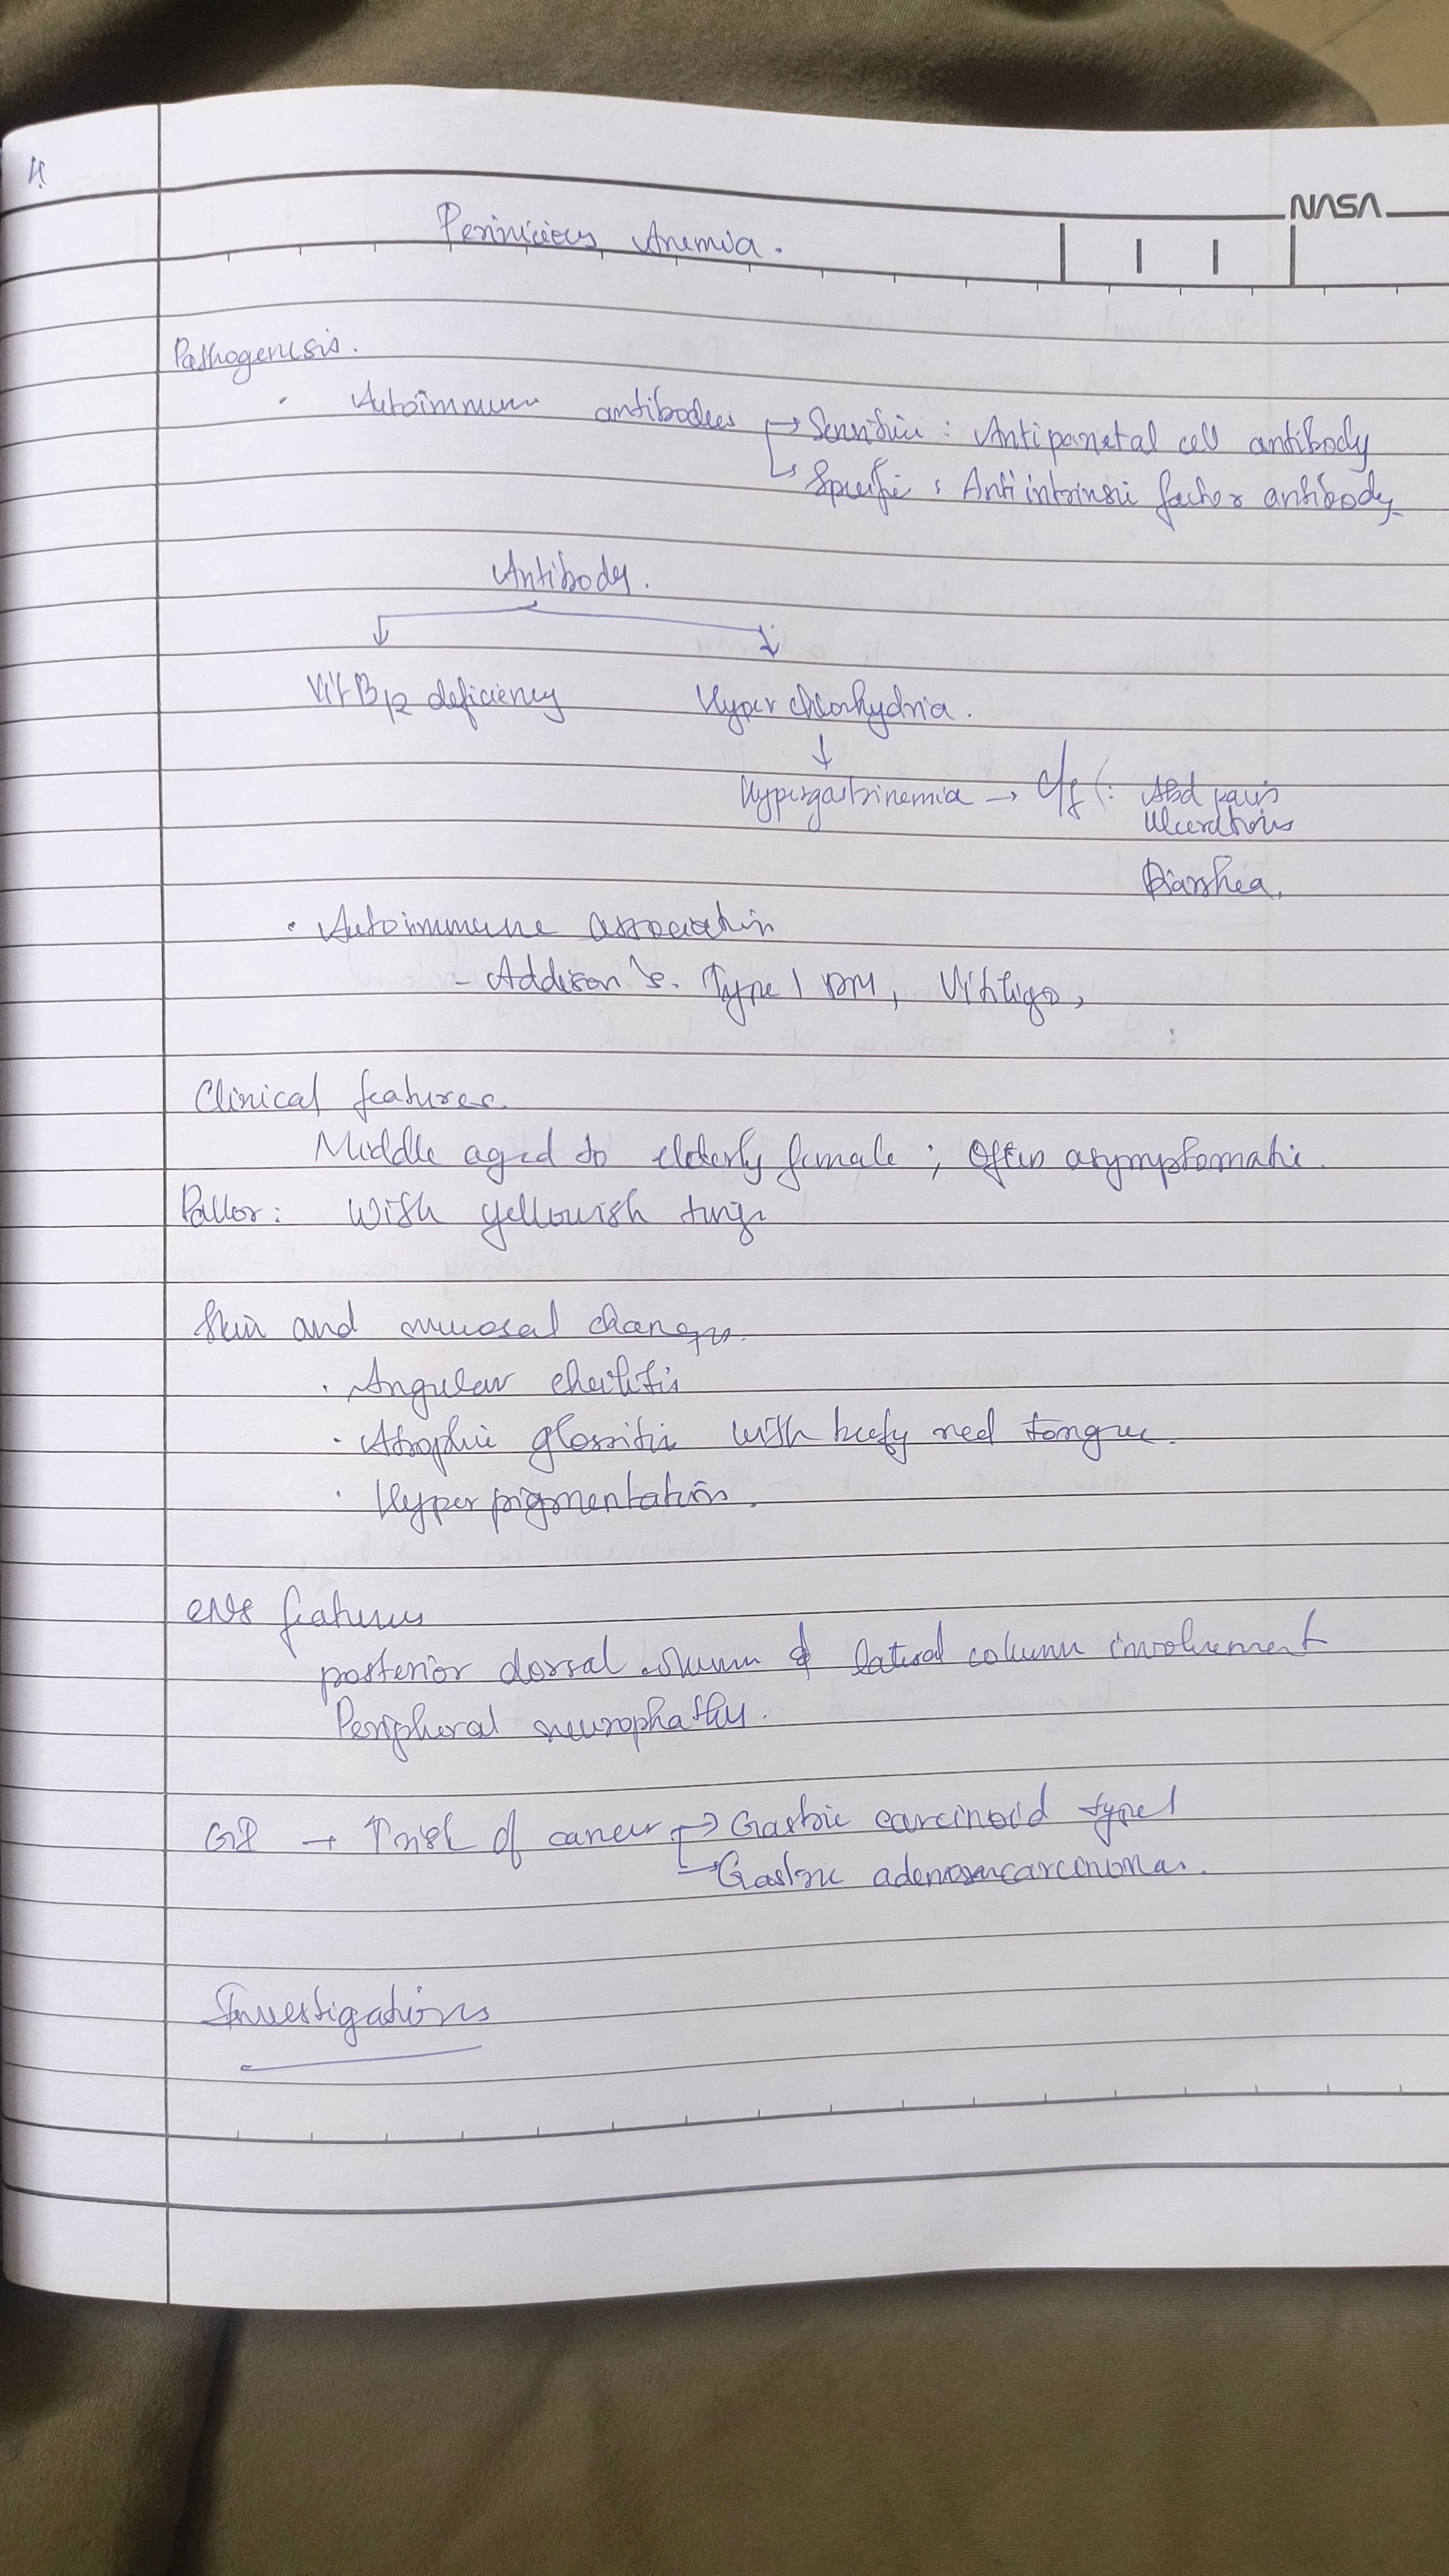 4.
NASA
Perinicious Anemia.
Pathogenesis.
· Autoimmune antibodies → Sensitive : Antiparietal cell antibody
↳ Specific : Anti intrinsic factor antibody
Antibody.
Vit B12 deficiency Hyperchlorhydria.
↓
Hypergastrinemia → C/f : Abd pain
Ulcerations
Diarrhea.
· Autoimmune association
- Addison's. Type 1 DM, Vitiligo,
Clinical features.
Middle aged to elderly female ; Often asymptomatic.
Pallor : With yellowish tinge
Skin and mucosal changes.
· Angular cheilitis
· Atrophic glossitis with beefy red tongue.
· Hyperpigmentation.
CNS features
posterior dorsal column & lateral column involvement
Peripheral neurophathy.
GI → ↑ risk of cancer → Gastric carcinoid type 1
↳ Gastric adenocarcinoma.
Investigations